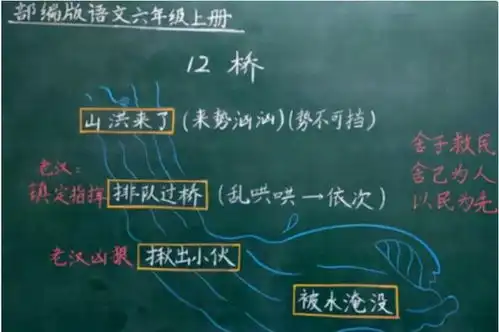 部编版语文六年级上册
12 桥
山洪来了 (来势汹汹)(势不可挡)
老汉:
镇定指挥 排队过桥 (乱哄哄→依次)
舍子救民
舍己为人
以民为先
老汉凶狠 揪出小伙
被水淹没